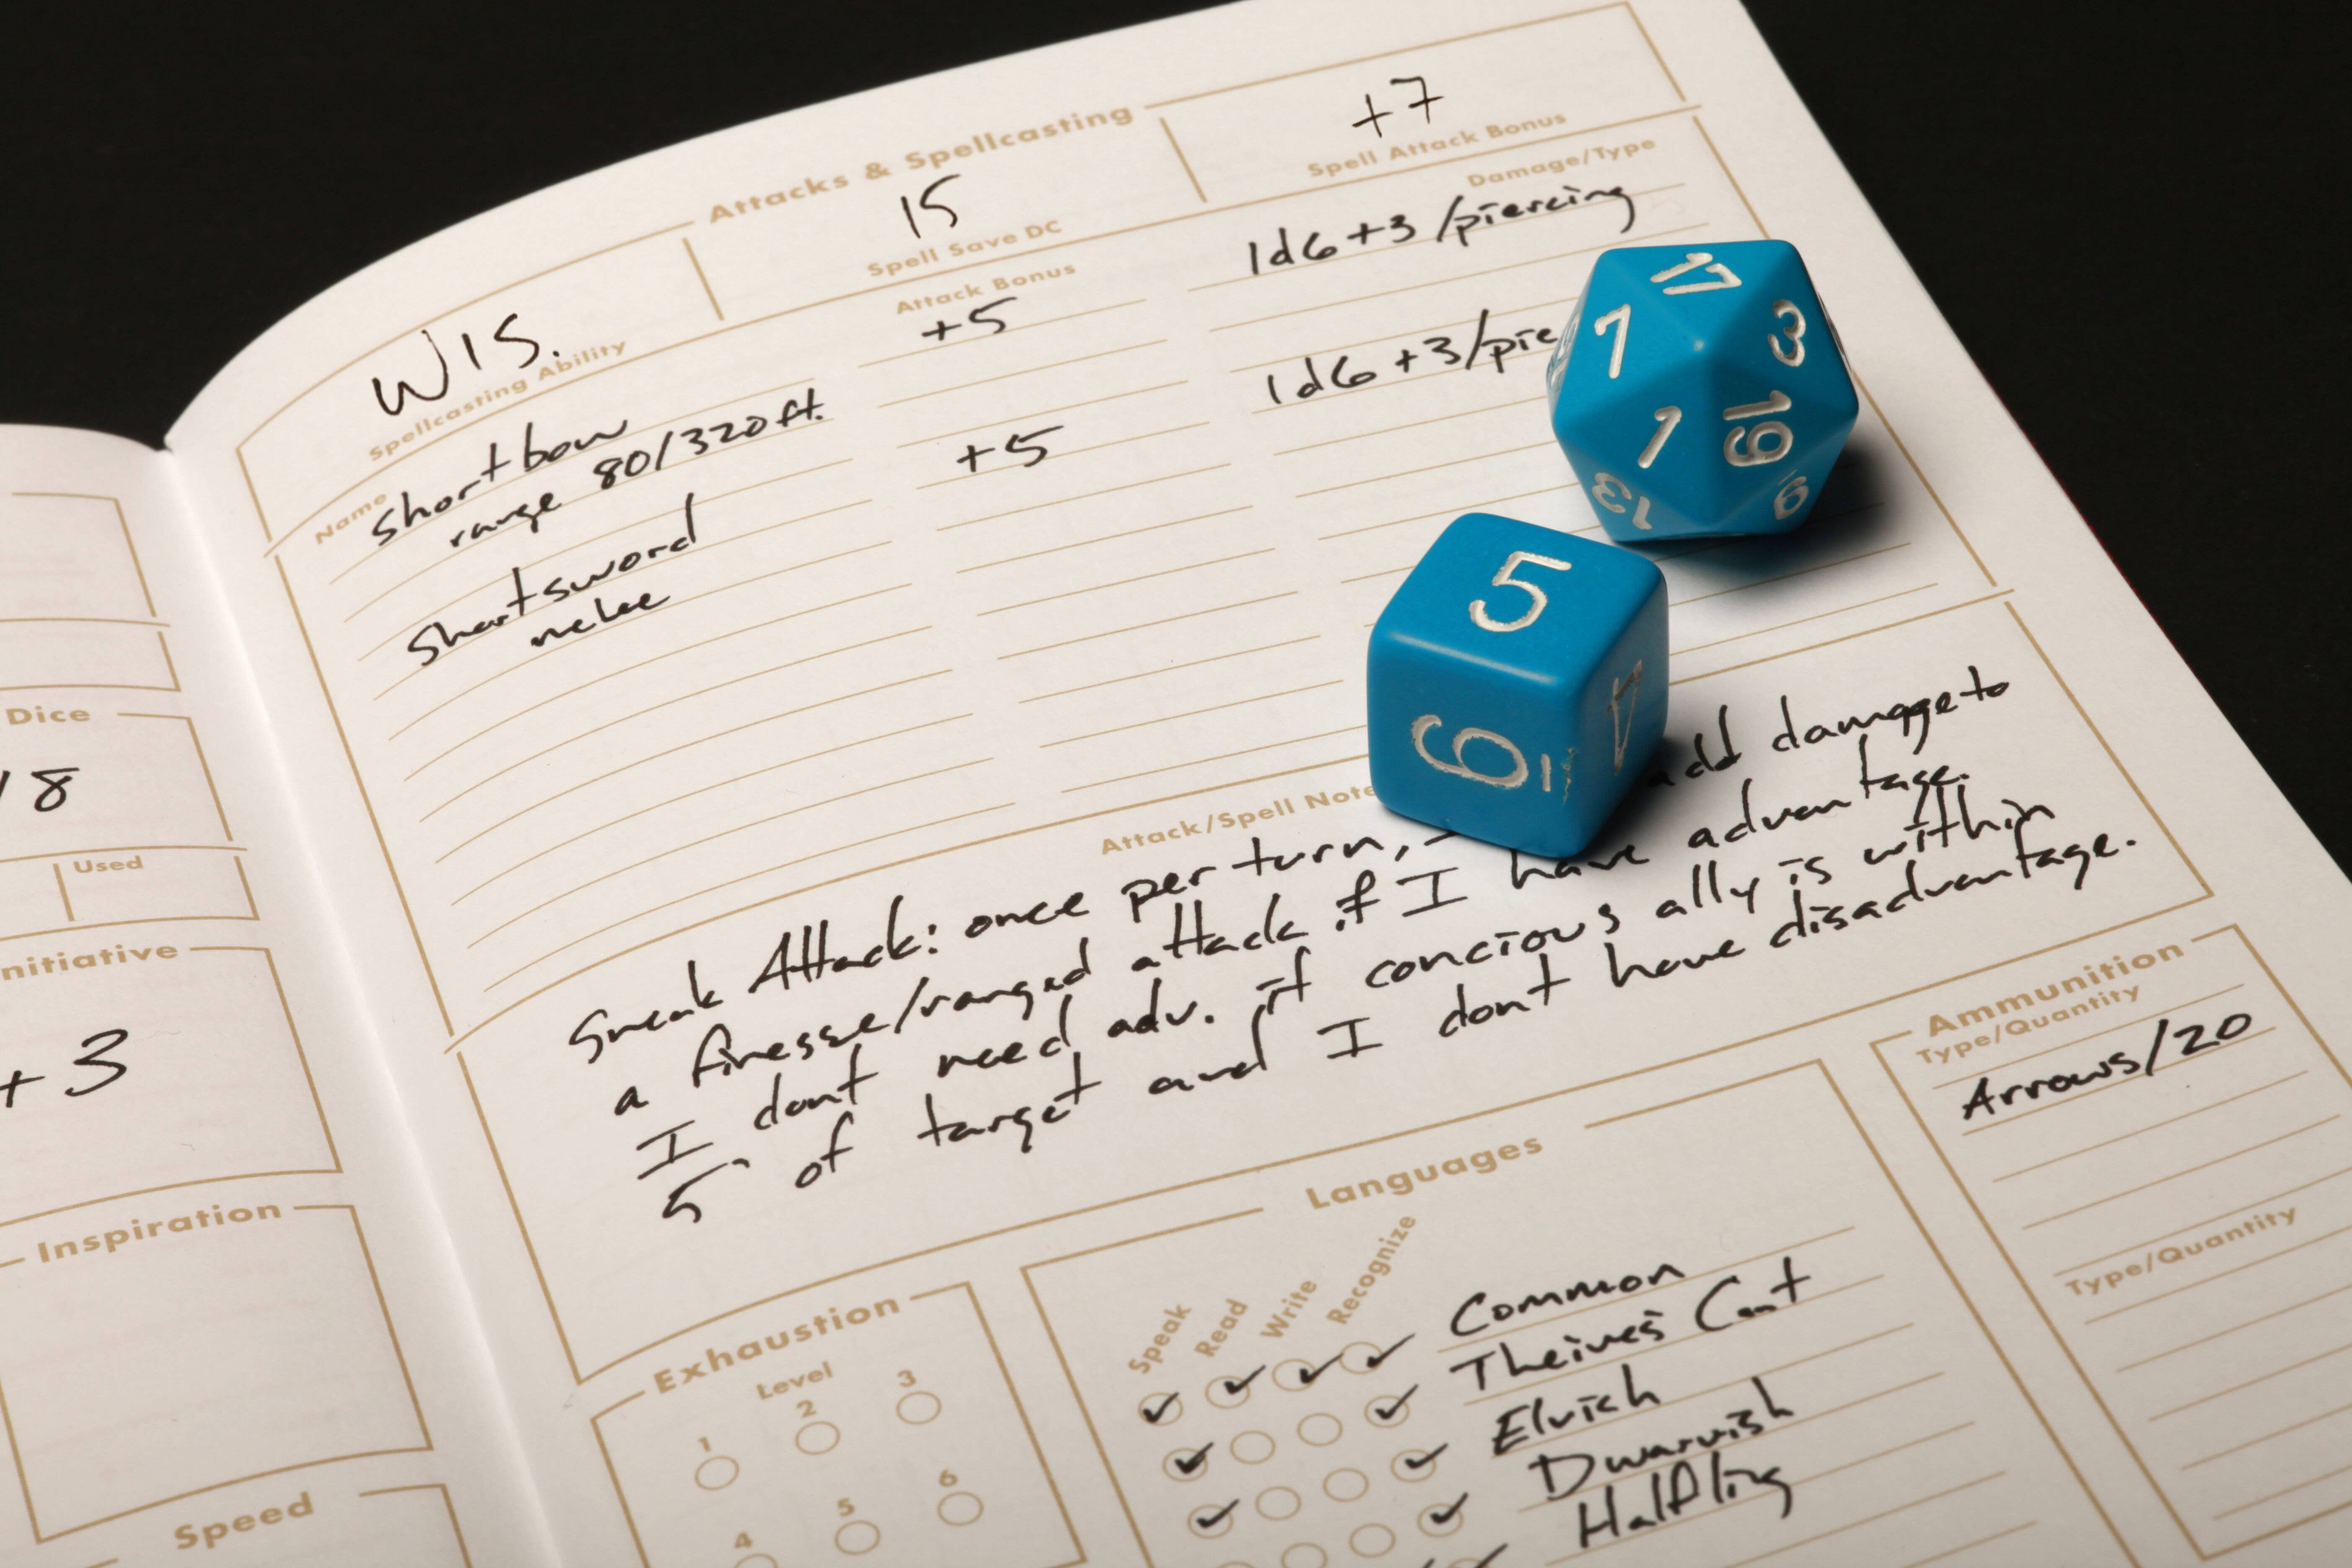 Attacks & Spellcasting
WIS.
Spellcasting Ability
15
Spell Save DC
+7
Spell Attack Bonus
Name
Attack Bonus
Damage/Type
Shortbow
+5
1d6+3/piercing
range 80/320ft.
Shortsword
+5
1d6+3/pie
melee
17
7
3
1
19
13
9
5
6
4
Attack/Spell Note
Sneak Attack: once per turn, add damage to
a finesse/ranged attack if I have advantage.
I dont need adv. if concious ally is within
5' of target and I dont have disadvantage.
Dice
18
Used
nitiative
+3
Inspiration
Speed
Exhaustion
Level
1 2 3
4 5 6
Languages
Speak Read Write Recognize
Common
Theives Cant
Elvish
Dwarvish
Halfling
Ammunition
Type/Quantity
Arrows/20
Type/Quantity